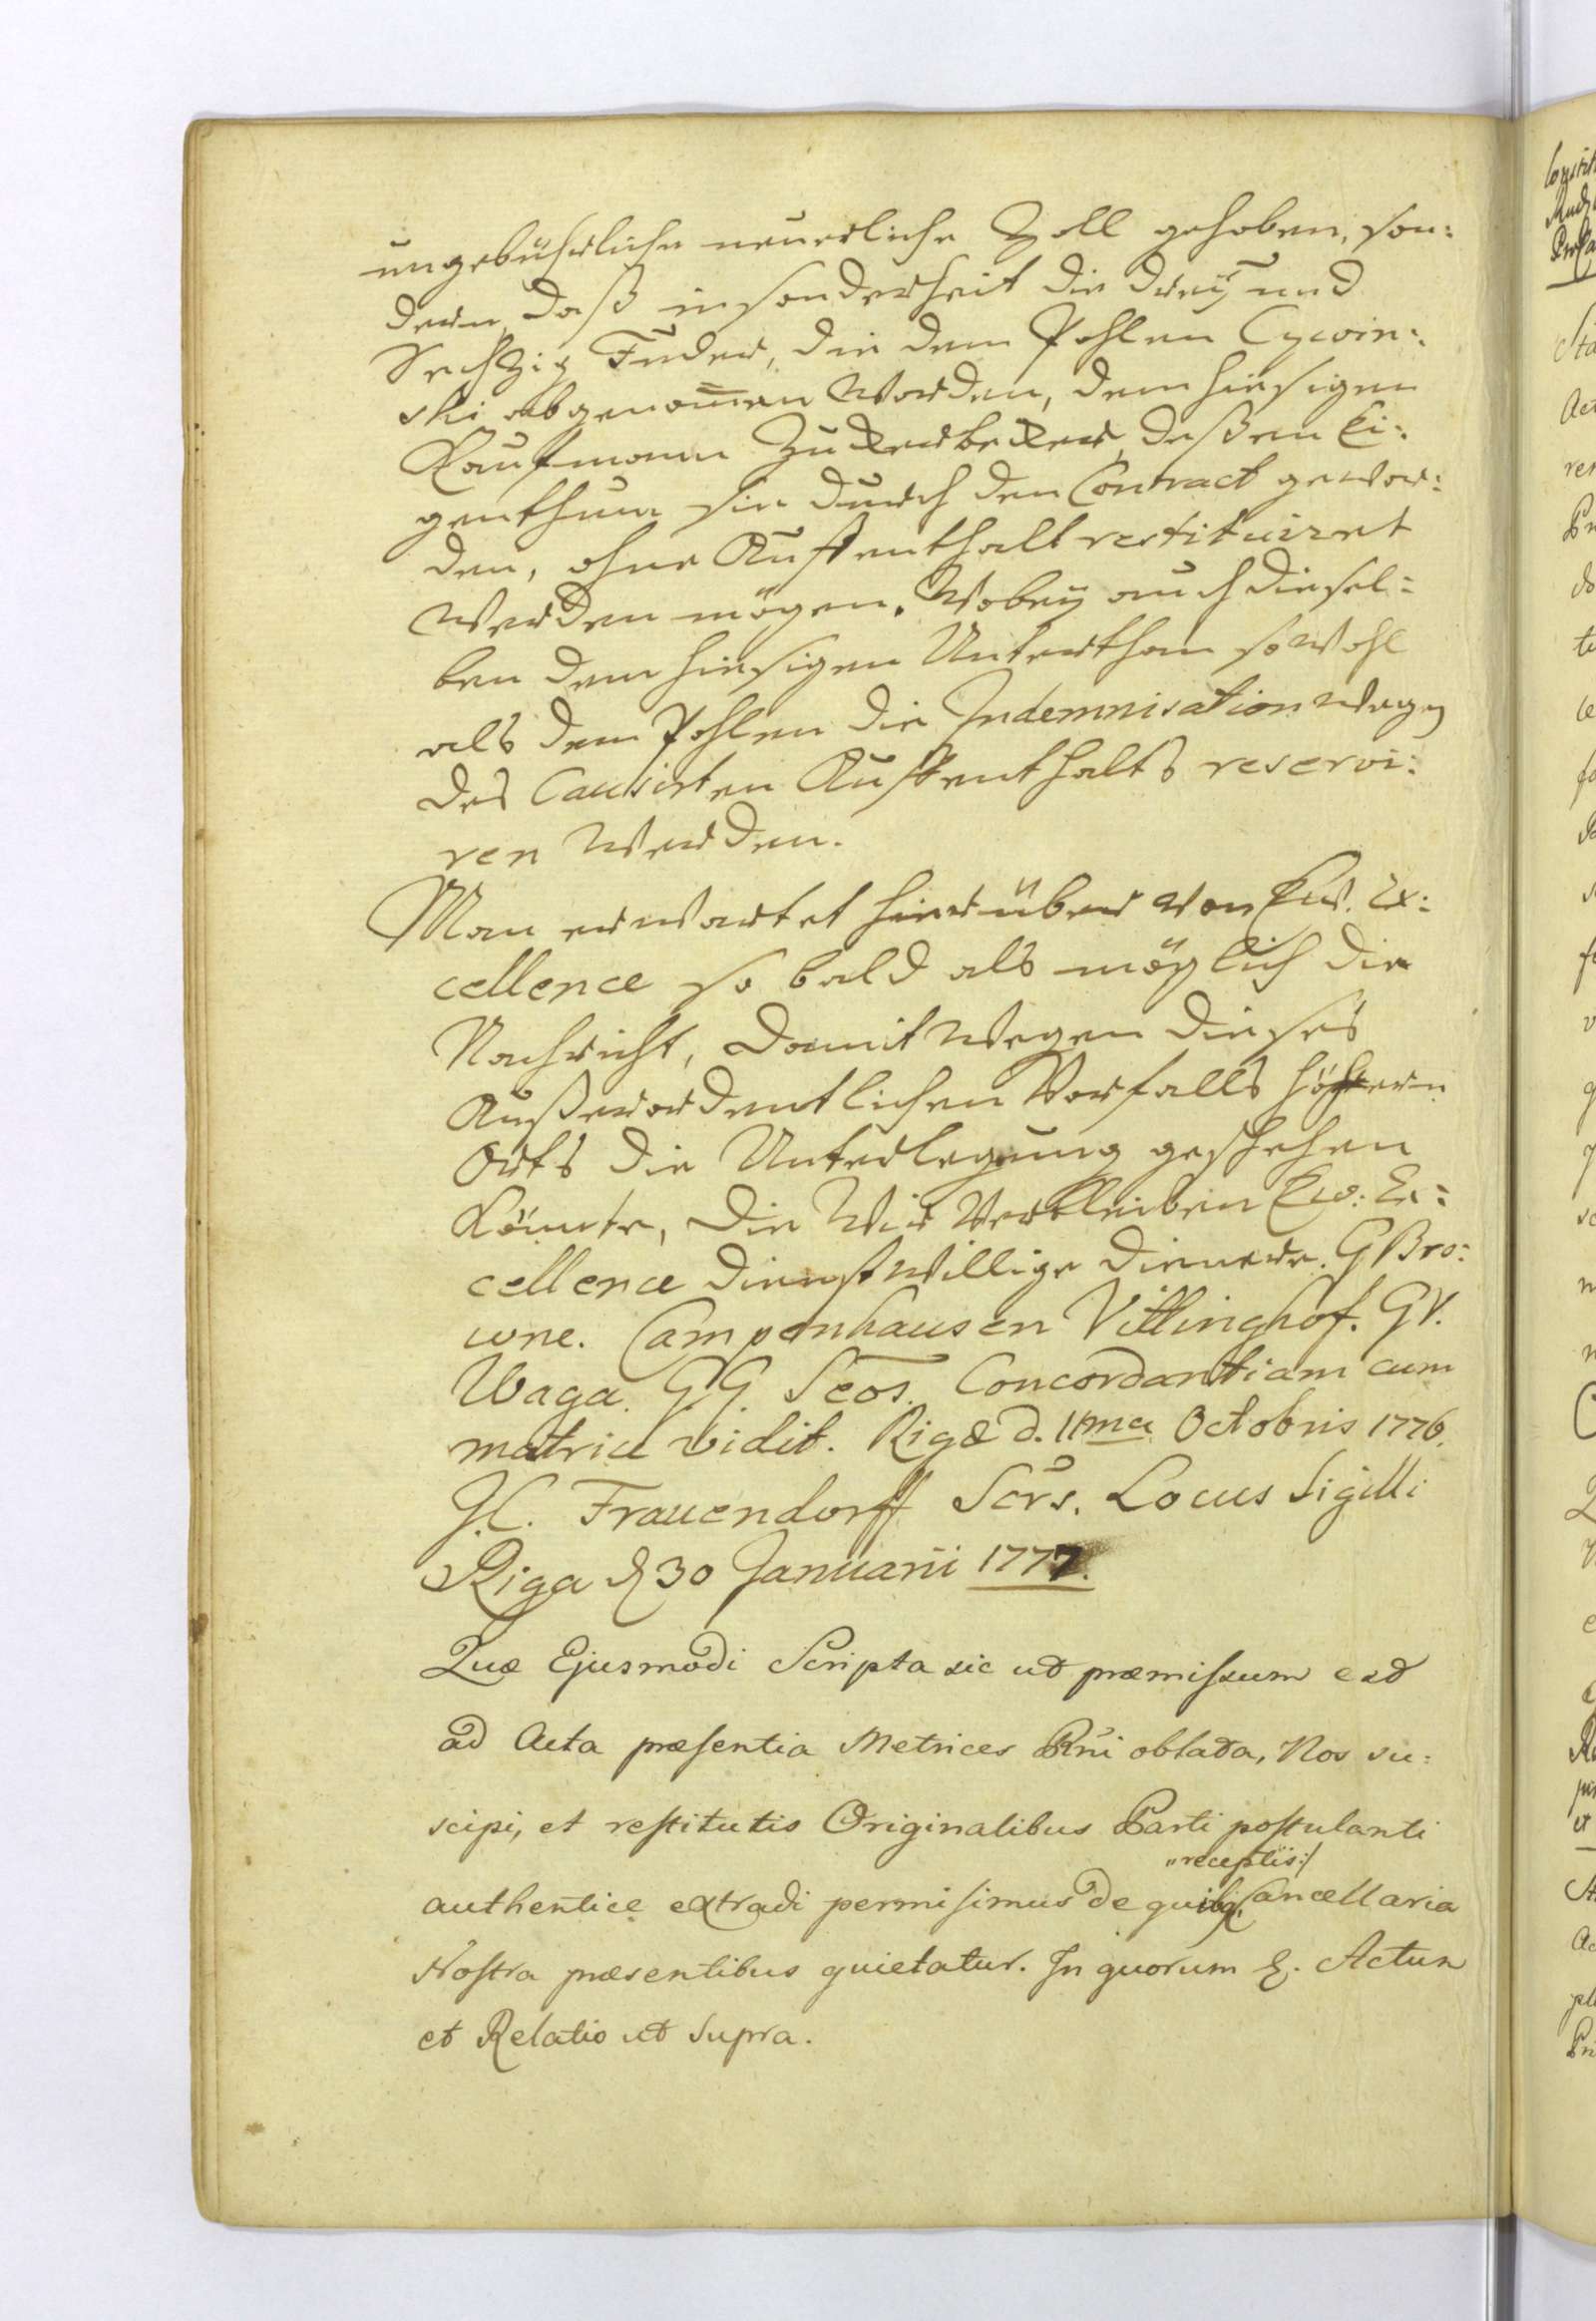 ungebührliche neuerliche Zoll gehoben, son:
dern daß insonderheit die dreÿ und
Sechzig Fuder, die dem Pohlen Cywin:
ski abgenom̅en worden, dem hiesigen
Kaufmann Zukerbeker, deßen Ei:
genthum sie durch den Contract gewor:
den, ohne Auffenthalt restituiret
werden mögen. Wobeÿ auch diesel:
ben dem hiesigen Unterthan sowohl
als dem Pohlen die Indemnisation wegen
des Causirten Auffenthalts reservi:
ren werden.
Man erwartet hierüber von Ew. Ex:
cellence so bald als möglich die
Nachricht, damit wegen dieses
Außerordentlichen Vorfalls höhern
Orts die Unterlegung geschehen
könnte, die wir verbleiben Ew: Ex:
cellence dienstwillige dienere. G Bro:
wne. Campenhausen Vittinghof. GV.
Waga. G.G. Secs. Concordantiam cum
matrice vidit. Rigæ d. 11ma Octobris 1776.
J.C. Frauendorff Scrs. Locus Sigilli
Riga d 30 Januarii 1777.
Quæ Ejusmodi Scripta sic ut præmissum est
ad Acta præsentia Metrices Rñi oblata, Nos su:
scipi, et restitutis Originalibus Parti postulanti
receptis:/
authentice extradi permisimus de quibq. Cancellaria
Nostra præsentibus quietatur. In quorum &. Actum
et Relatio ut supra.